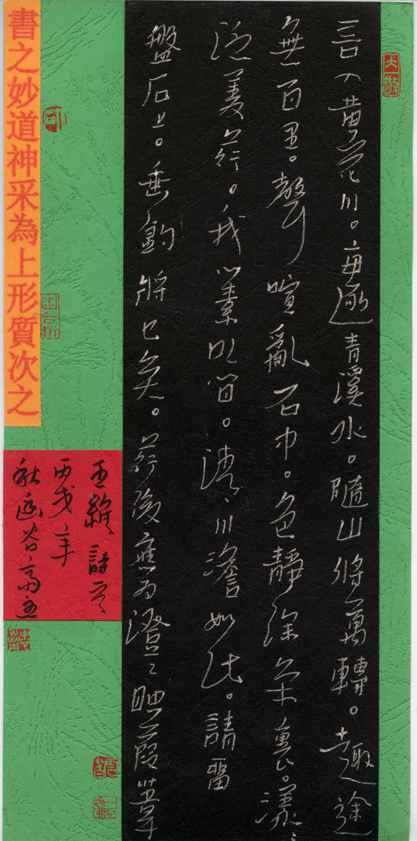 言入黃花川。每逐青溪水。隨山將萬轉。趣途
無百里。聲喧亂石中。色靜深松裏。漾〻
泛菱荇。我心素以閒。清川澹如此。請留
盤石上。垂釣將已矣。荇後應為澄〻映葭葦
書之妙道神采為上形質次之
王維詩
丙戌年